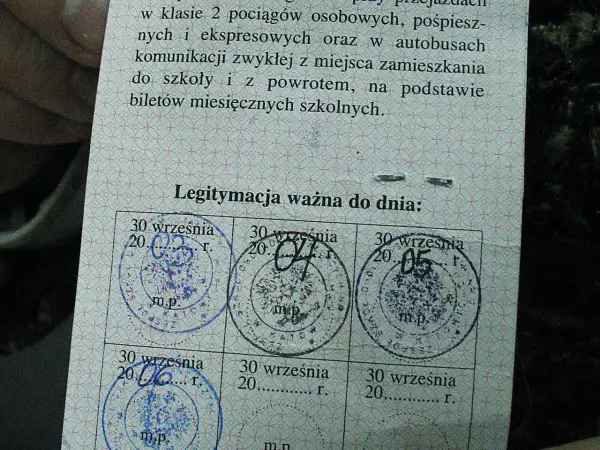 przejazdach
w klasie 2 pociągów osobowych, pośpiesz-
nych i ekspresowych oraz w autobusach
komunikacji zwykłej z miejsca zamieszkania
do szkoły i z powrotem, na podstawie
biletów miesięcznych szkolnych.
Legitymacja ważna do dnia:
30 września
2003 r.
m.p.
30 września
2004 r.
m.p.
30 września
2005 r.
m.p.
30 września
2006 r.
m.p.
30 września
20............ r.
m.p
30 września
20............ r.